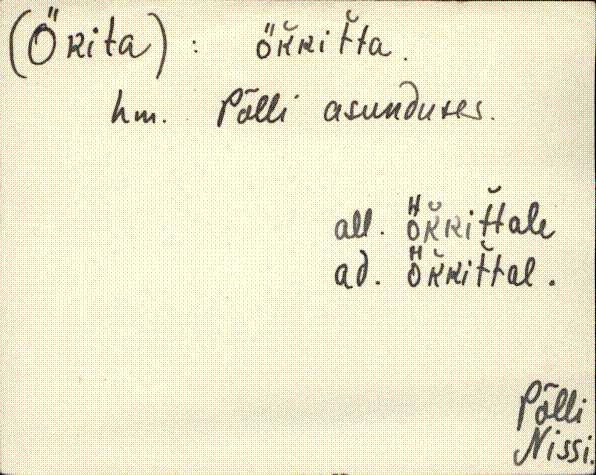 (Örita) : ök̆kit̆ta.
hm. Põlli asunduses.
all. Ök̆kit̆tale
ad. Ök̆kit̆tal.
Põlli
Nissi.